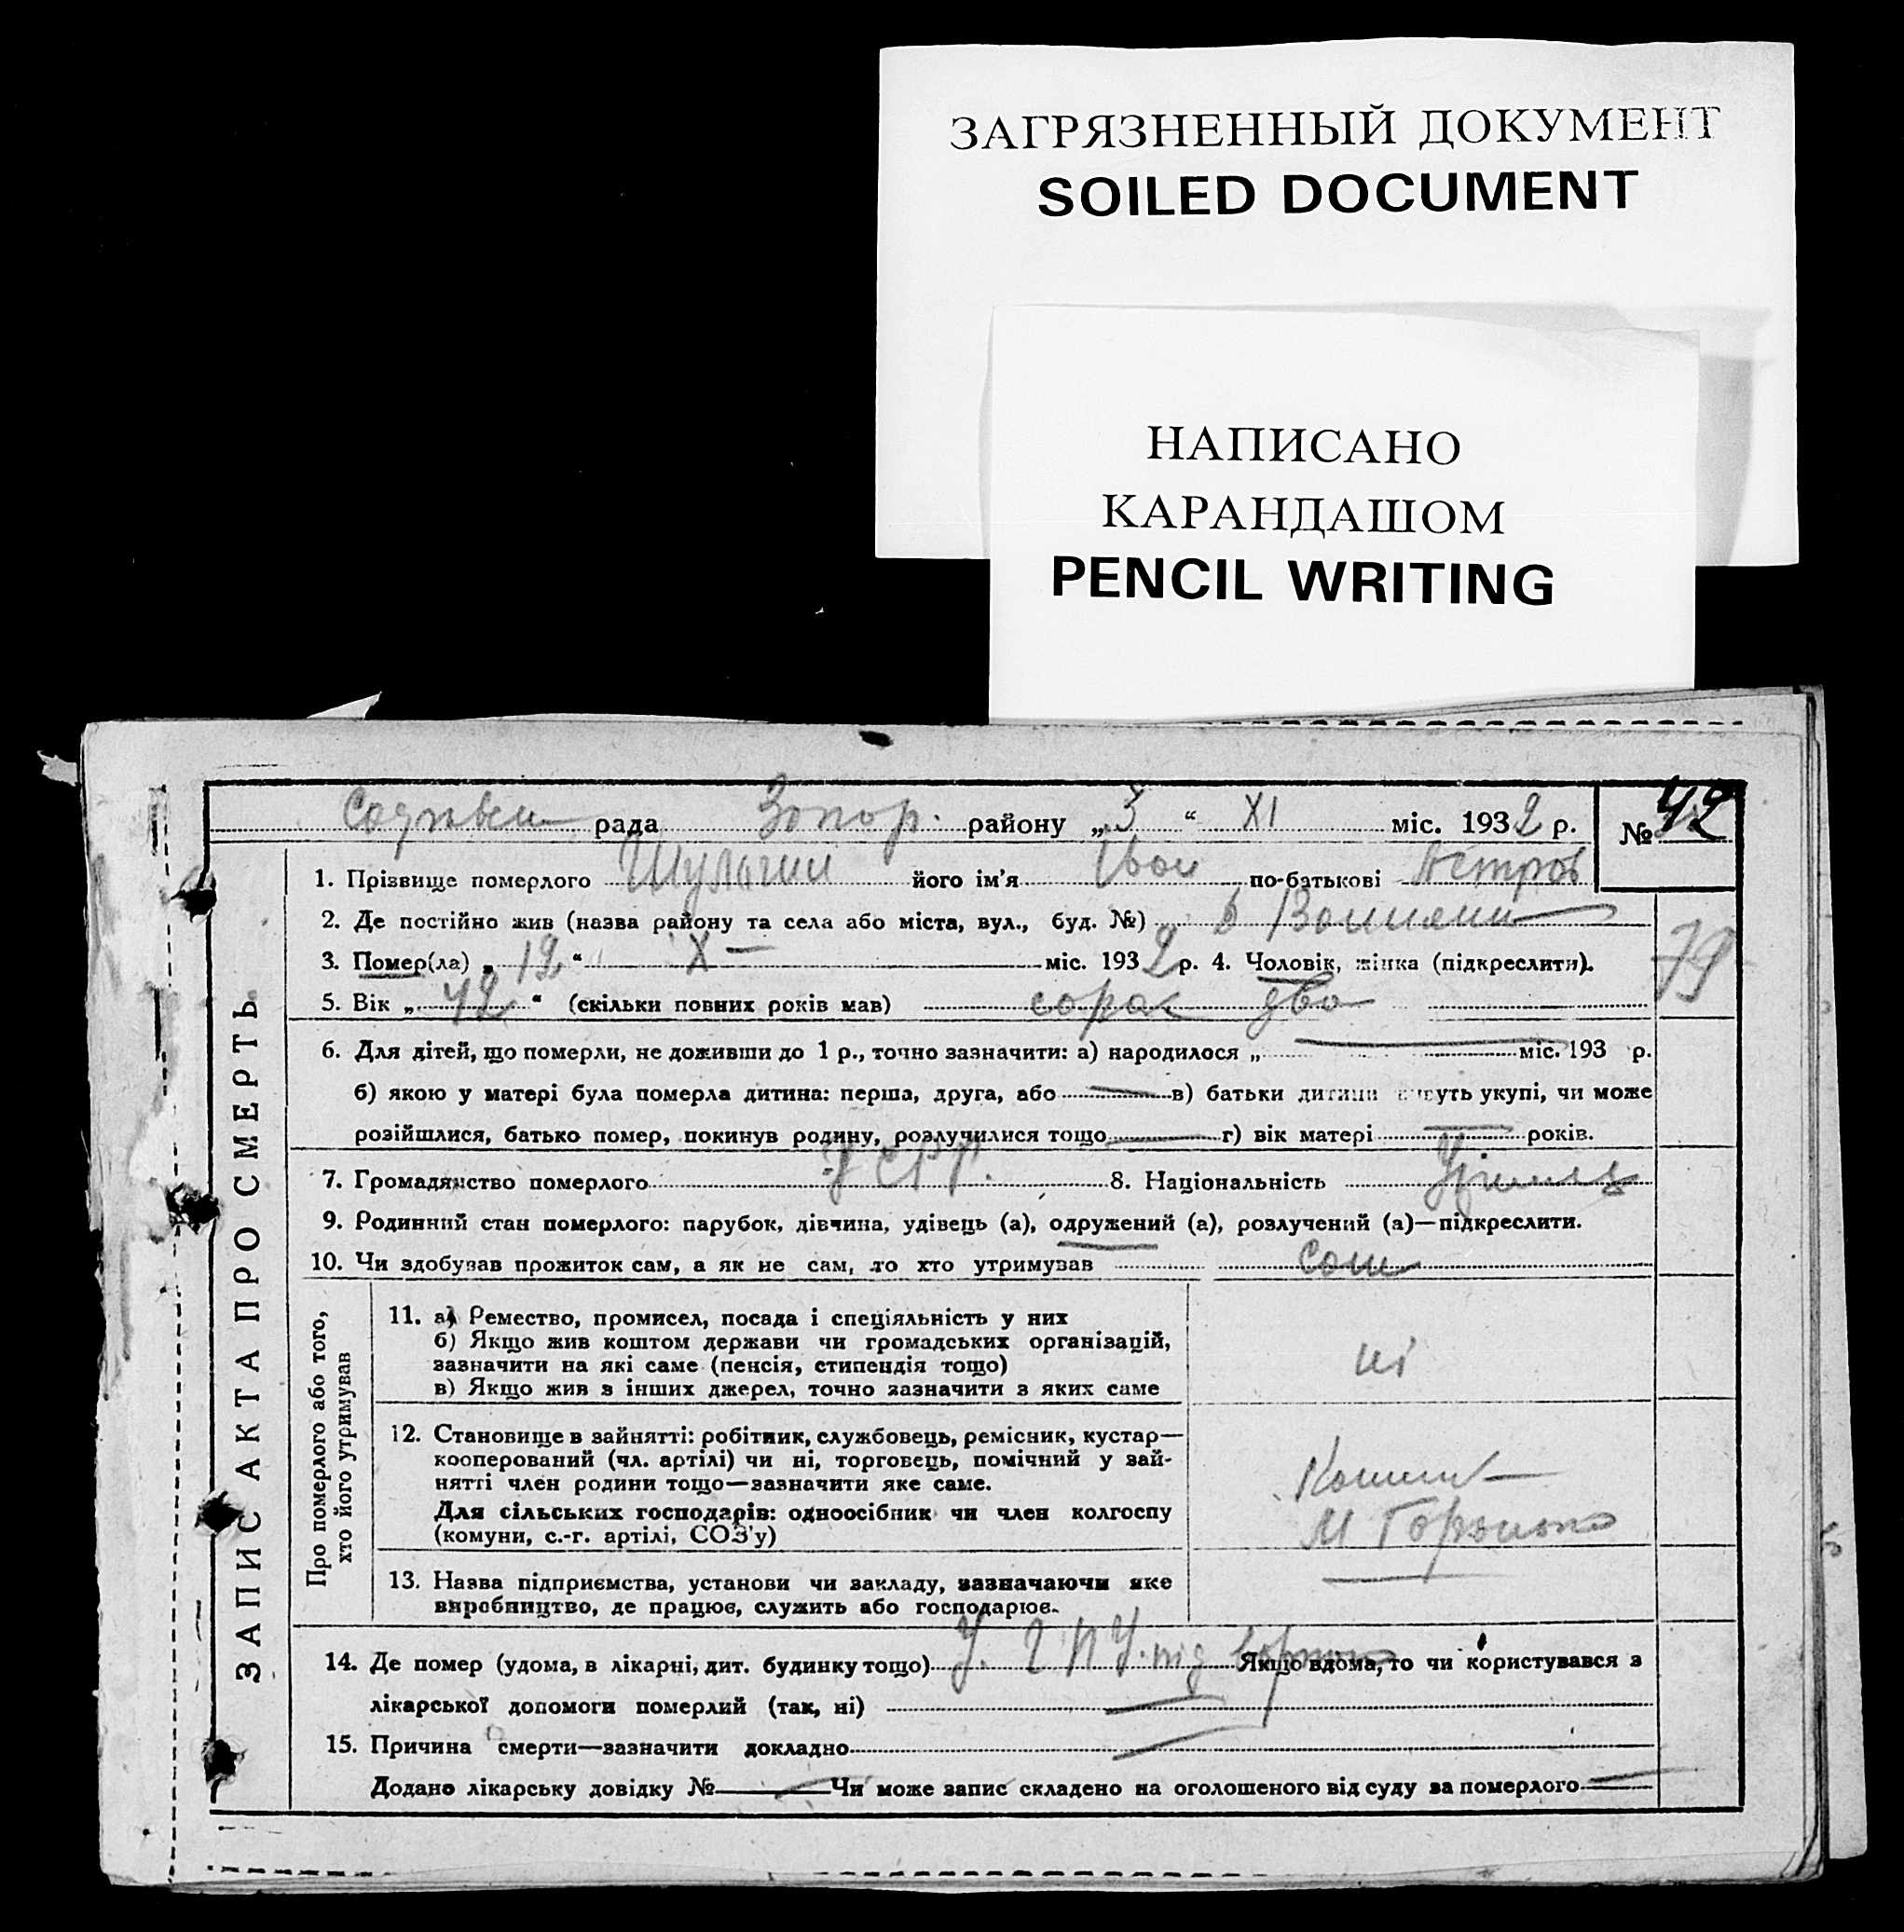 ЗАГРЯЗНЕННЫЙ ДОКУМЕНТ
SOILED DOCUMENT
НАПИСАНО
КАРАНДАШОМ
PENCIL WRITING
рада Запор. району „3“ XI міс. 1932 р. № 42
1. Прізвище померлого Шулагин його ім'я Іван по-батькові Петров
2. Де постійно жив (назва району та села або міста, вул., буд. №)
79
3. Помер(ла) „12“ X міс. 1932 р. 4. Чоловік, жінка (підкреслити).
5. Вік „42“ (скільки повних років мав) сорак два
6. Для дітей, що померли, не доживши до 1 р., точно зазначити: а) народилося „ міс. 193 р.
б) якою у матері була померла дитина: перша, друга, або в) батьки дитини живуть укупі, чи може
розійшлися, батько помер, покинув родину, розлучилися тощо г) вік матері років.
7. Громадянство померлого УСРР. 8. Національність
9. Родинний стан померлого: парубок, дівчина, удівець (а), одружений (а), розлучений (а)—підкреслити.
10. Чи здобував прожиток сам, а як не сам, то хто утримував сам
ЗАПИС АКТА ПРО СМЕРТЬ
Про померлого або того,
хто його утримував
11. а) Ремество, промисел, посада і спеціяльність у них
б) Якщо жив коштом держави чи громадських організацій,
зазначити на які саме (пенсія, стипендія тощо)
в) Якщо жив з інших джерел, точно зазначити з яких саме
ні
12. Становище в зайнятті: робітник, службовець, ремісник, кустар—
кооперований (чл. артілі) чи ні, торговець, помічний у зай-
нятті член родини тощо—зазначити яке саме.
Для сільських господарів: одноосібник чи член колгоспу
(комуни, с.-г. артілі, СОЗ'у)
13. Назва підприємства, установи чи закладу, зазначаючи яке
виробництво, де працює, служить або господарює.
14. Де помер (удома, в лікарні, дит. будинку тощо) У. ГПУ. під Якщо вдома, то чи користувався з
лікарської допомоги померлий (так, ні)
15. Причина смерти—зазначити докладно
Додано лікарську довідку № Чи може запис складено на оголошеного від суду за померлого